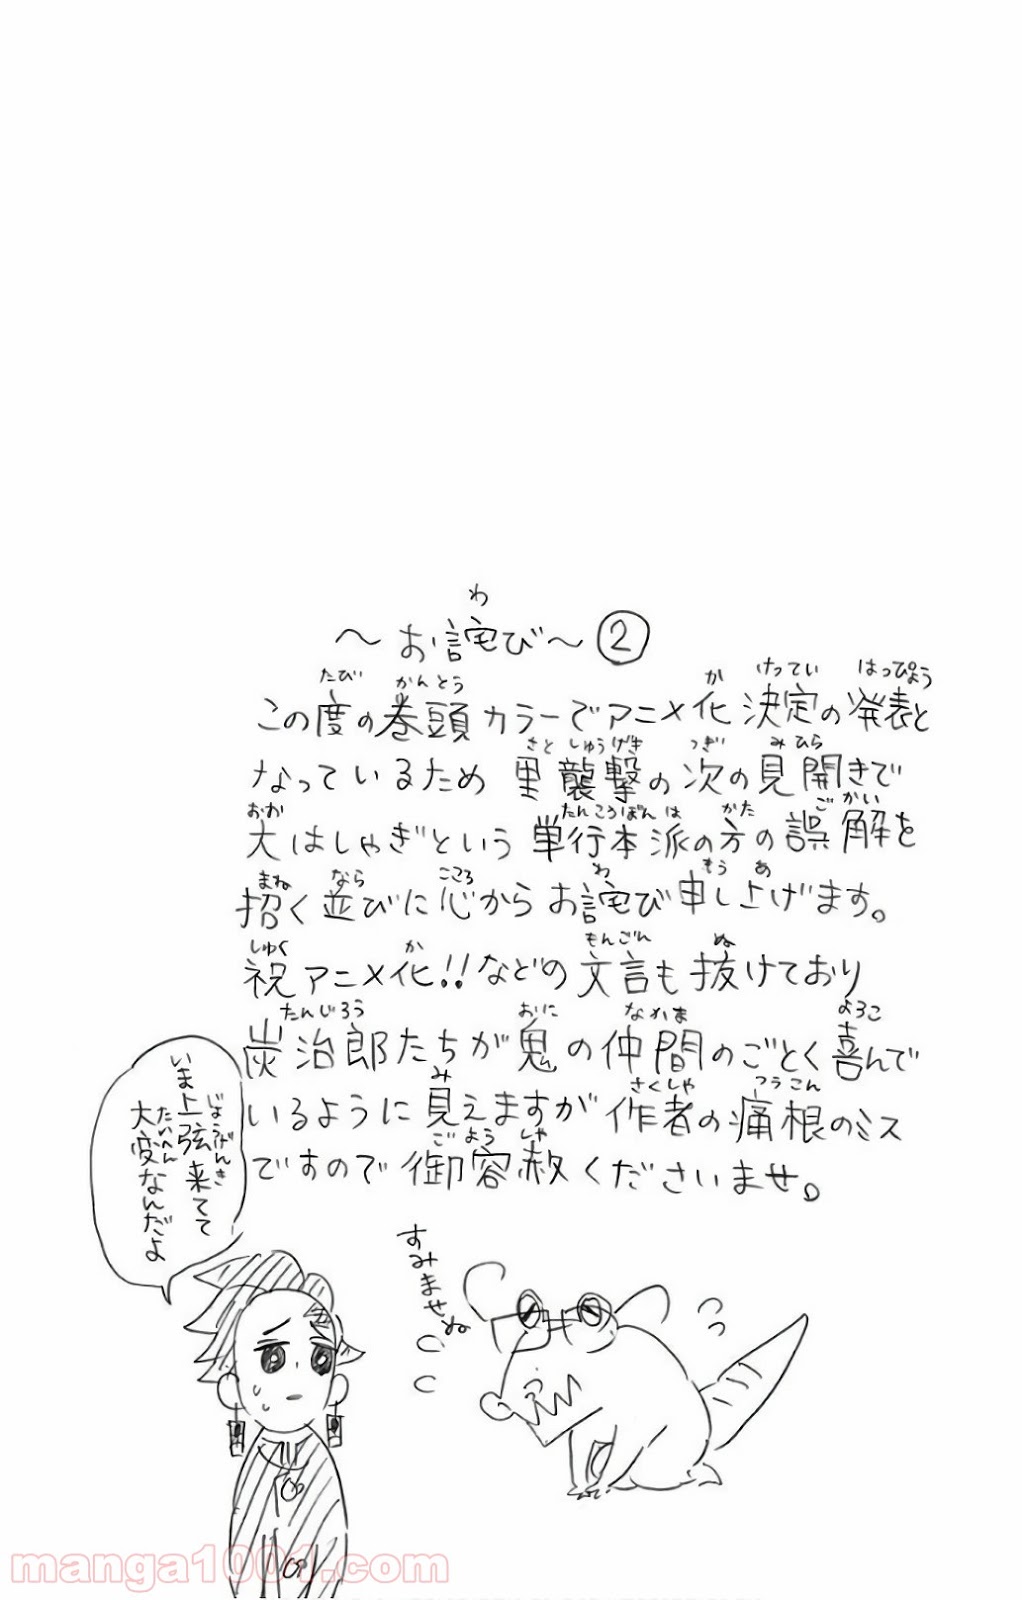 ～お詫び～②
この度の巻頭カラーでアニメ化決定の発表と
なっているため里襲撃の次の見開きで
大はしゃぎという単行本派の方の誤解を
招く並びに心からお詫び申し上げます。
祝アニメ化!!などの文言も抜けており
炭治郎たちが鬼の仲間のごとく喜んで
いるように見えますが作者の痛根のミス
ですので御容赦くださいませ。
いま上弦来てて
大変なんだよ
すみませぬ
manga1001.com